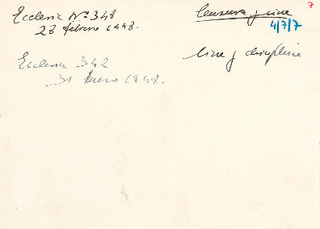 Ecclesia Nº 348
28 febrero 1948.
Censura y cine
4/7/7
7
Ecclesia 342
31 Enero 1948.
Cine y disciplina